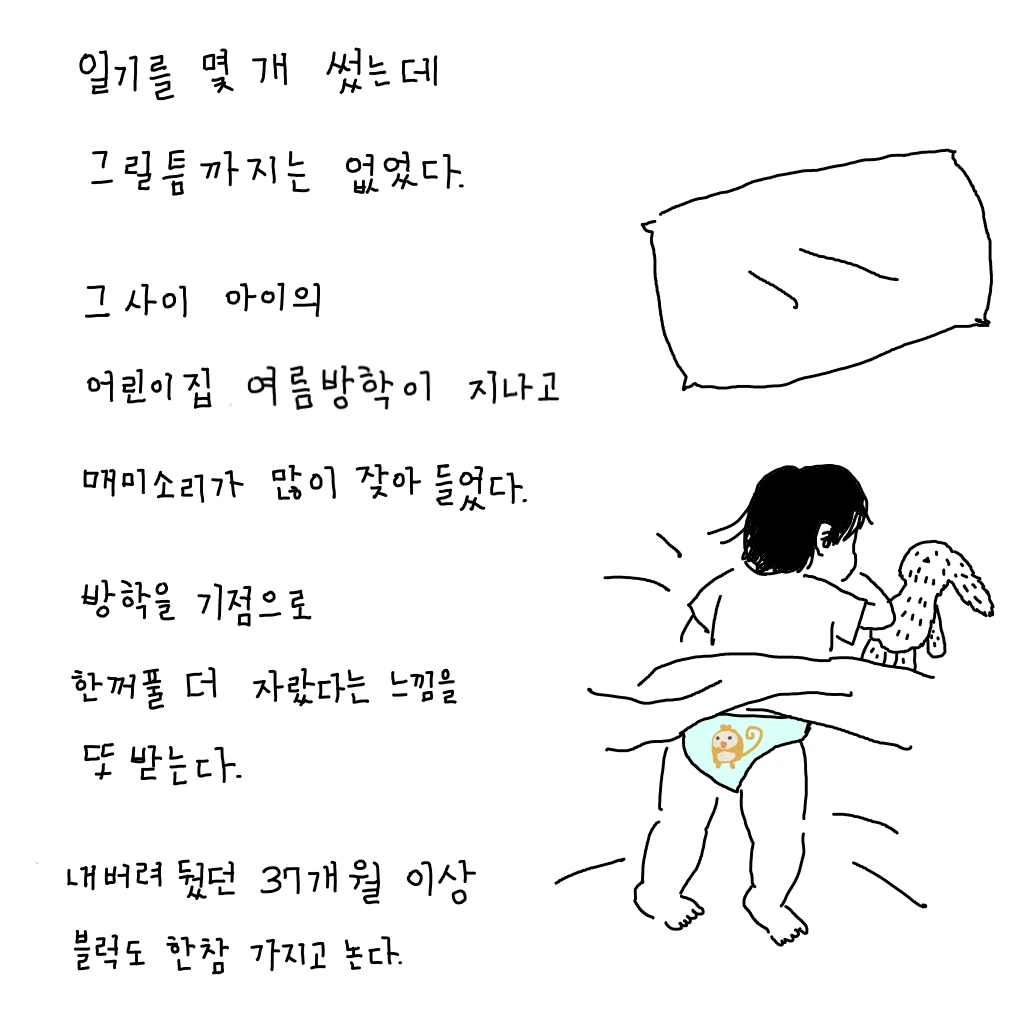 일기를 몇 개 썼는데
그릴틈까지는 없었다.
그사이 아이의
어린이집 여름방학이 지나고
매미소리가 많이 잦아 들었다.
방학을 기점으로
한꺼풀 더 자랐다는 느낌을
또 받는다.
내버려 뒀던 37개월 이상
블럭도 한참 가지고 논다.